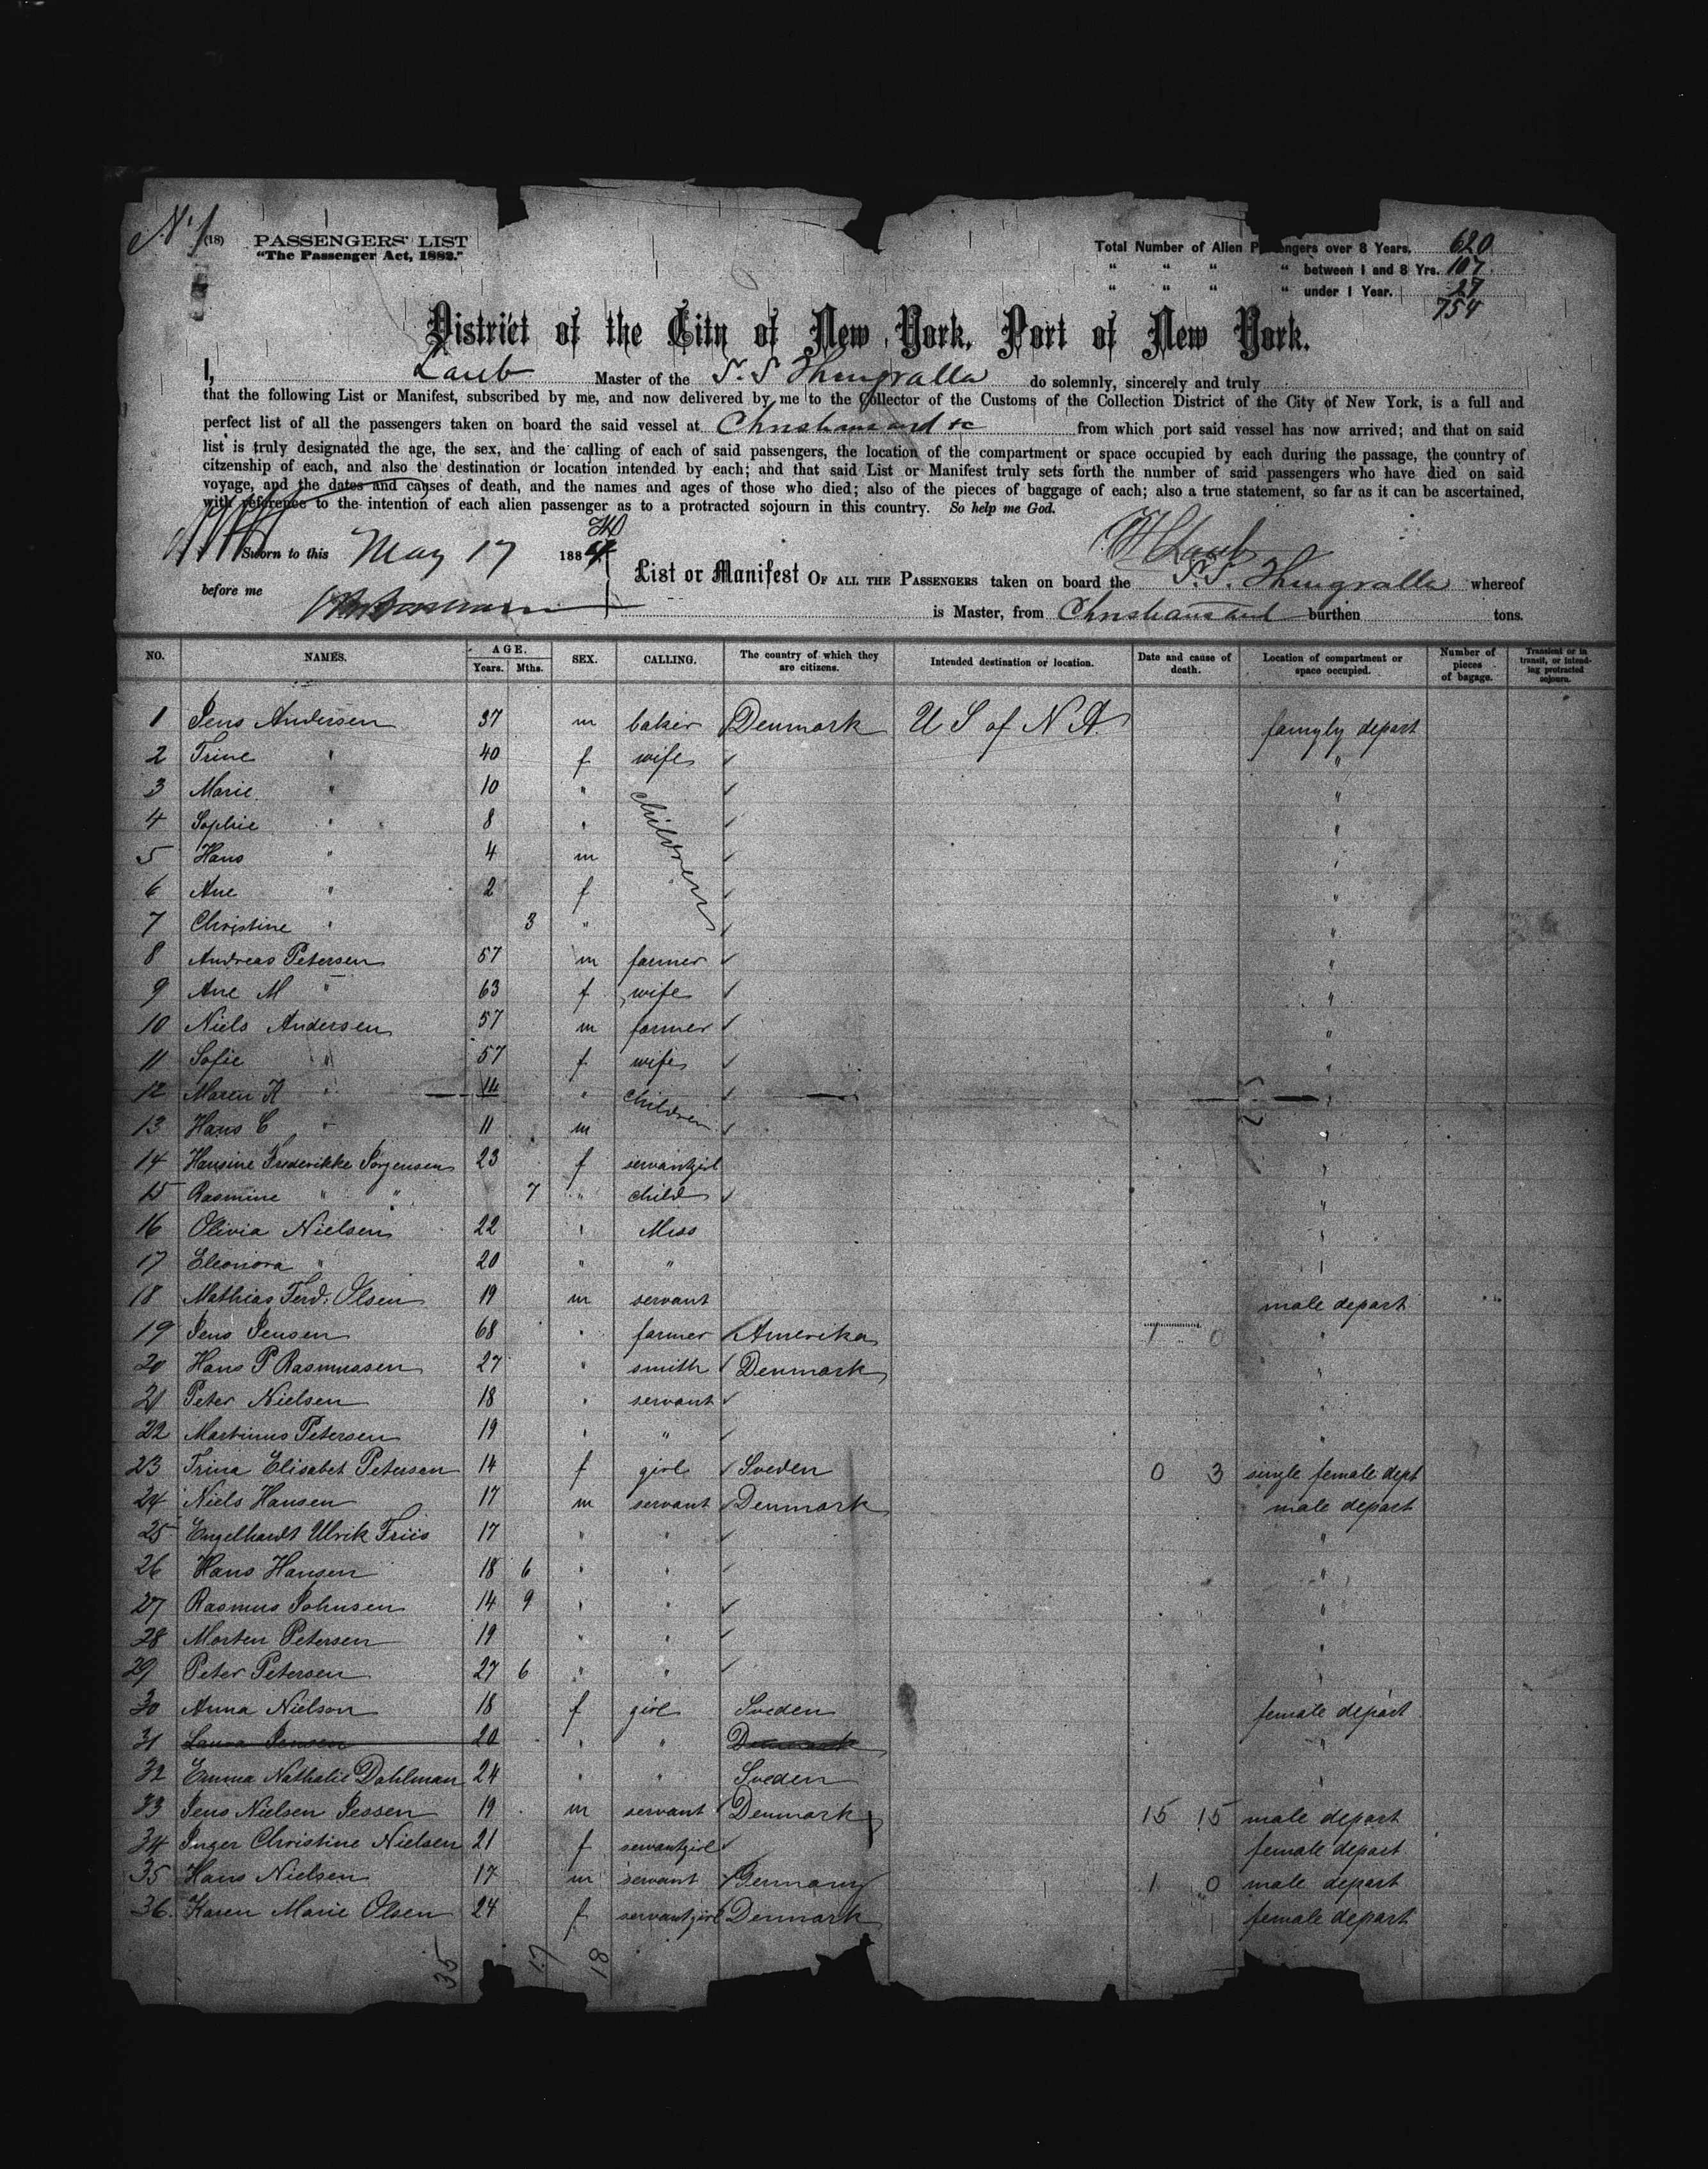 No 1 (18) PASSENGERS' LIST
"The Passenger Act, 1882."
Total Number of Alien Passengers over 8 Years. 620
" " " " between 1 and 8 Yrs. 107
" " " " under 1 Year. 27
754
District of the City of New York, Port of New York.
I, Laub Master of the S. S Thingvalla do solemnly, sincerely and truly
that the following List or Manifest, subscribed by me, and now delivered by me to the Collector of the Customs of the Collection District of the City of New York, is a full and
perfect list of all the passengers taken on board the said vessel at Christiansand &c from which port said vessel has now arrived; and that on said
list is truly designated the age, the sex, and the calling of each of said passengers, the location of the compartment or space occupied by each during the passage, the country of
citzenship of each, and also the destination or location intended by each; and that said List or Manifest truly sets forth the number of said passengers who have died on said
voyage, and the dates and causes of death, and the names and ages of those who died; also of the pieces of baggage of each; also a true statement, so far as it can be ascertained,
with reference to the intention of each alien passenger as to a protracted sojourn in this country. So help me God.
Sworn to this May 17 188
Laub
before me
List or Manifest OF ALL THE PASSENGERS taken on board the S.S. Thingvalla whereof
is Master, from Christiansand burthen tons.
NO. NAMES. AGE. Years. Mths. SEX. CALLING. The country of which they are citizens. Intended destination or location. Date and cause of death. Location of compartment or space occupied. Number of pieces of bagage. Transient or in transit, or intending protracted sojourn.
1 Jens Andersen 37 m baker Denmark U S of N A. famyly depart
2 Trine " 40 f wife "
3 Marie " 10 " children "
4 Sophie " 8 " "
5 Hans " 4 m "
6 Ane " 2 f "
7 Christine " 3 " "
8 Andreas Petersen 57 m farmer "
9 Ane M " 63 f wife "
10 Niels Andersen 57 m farmer "
11 Sofie " 57 f wife "
12 Maren K " 14 " children "
13 Hans C " 11 m "
14 Hansine Frederikke Jorgensen 23 f servantgirl "
15 Rasmine " " 7 " child "
16 Olivia Nielsen 22 " Miss "
17 Eleonora " 20 " " "
18 Mathias Ferd. Olsen 19 m servant male depart
19 Jens Jensen 68 " farmer Amerika 1 0 "
20 Hans P Rasmussen 27 " smith Denmark "
21 Peter Nielsen 18 " servant "
22 Martinus Petersen 19 " " "
23 Trina Elisabet Petersen 14 f girl Sveden 0 3 single female dept
24 Niels Hansen 17 m servant Denmark male depart
25 Engelhardt Ulrik Friis 17 " " "
26 Hans Hansen 18 6 " " "
27 Rasmus Johnsen 14 9 " " "
28 Morten Petersen 19 " " "
29 Peter Petersen 27 6 " " "
30 Anna Nielson 18 f girl Sveden female depart
31 Laura Jensen 20 " " Denmark "
32 Emma Nathalie Dahlman 24 " " Sveden "
33 Jens Nielsen Jessen 19 m servant Denmark 15 15 male depart
34 Inger Christine Nielsen 21 f servantgirl female depart
35 Hans Nielsen 17 m servant Germany 1 0 male depart
36. Karen Marie Olsen 24 f servantgirl Denmark female depart
35 17 18